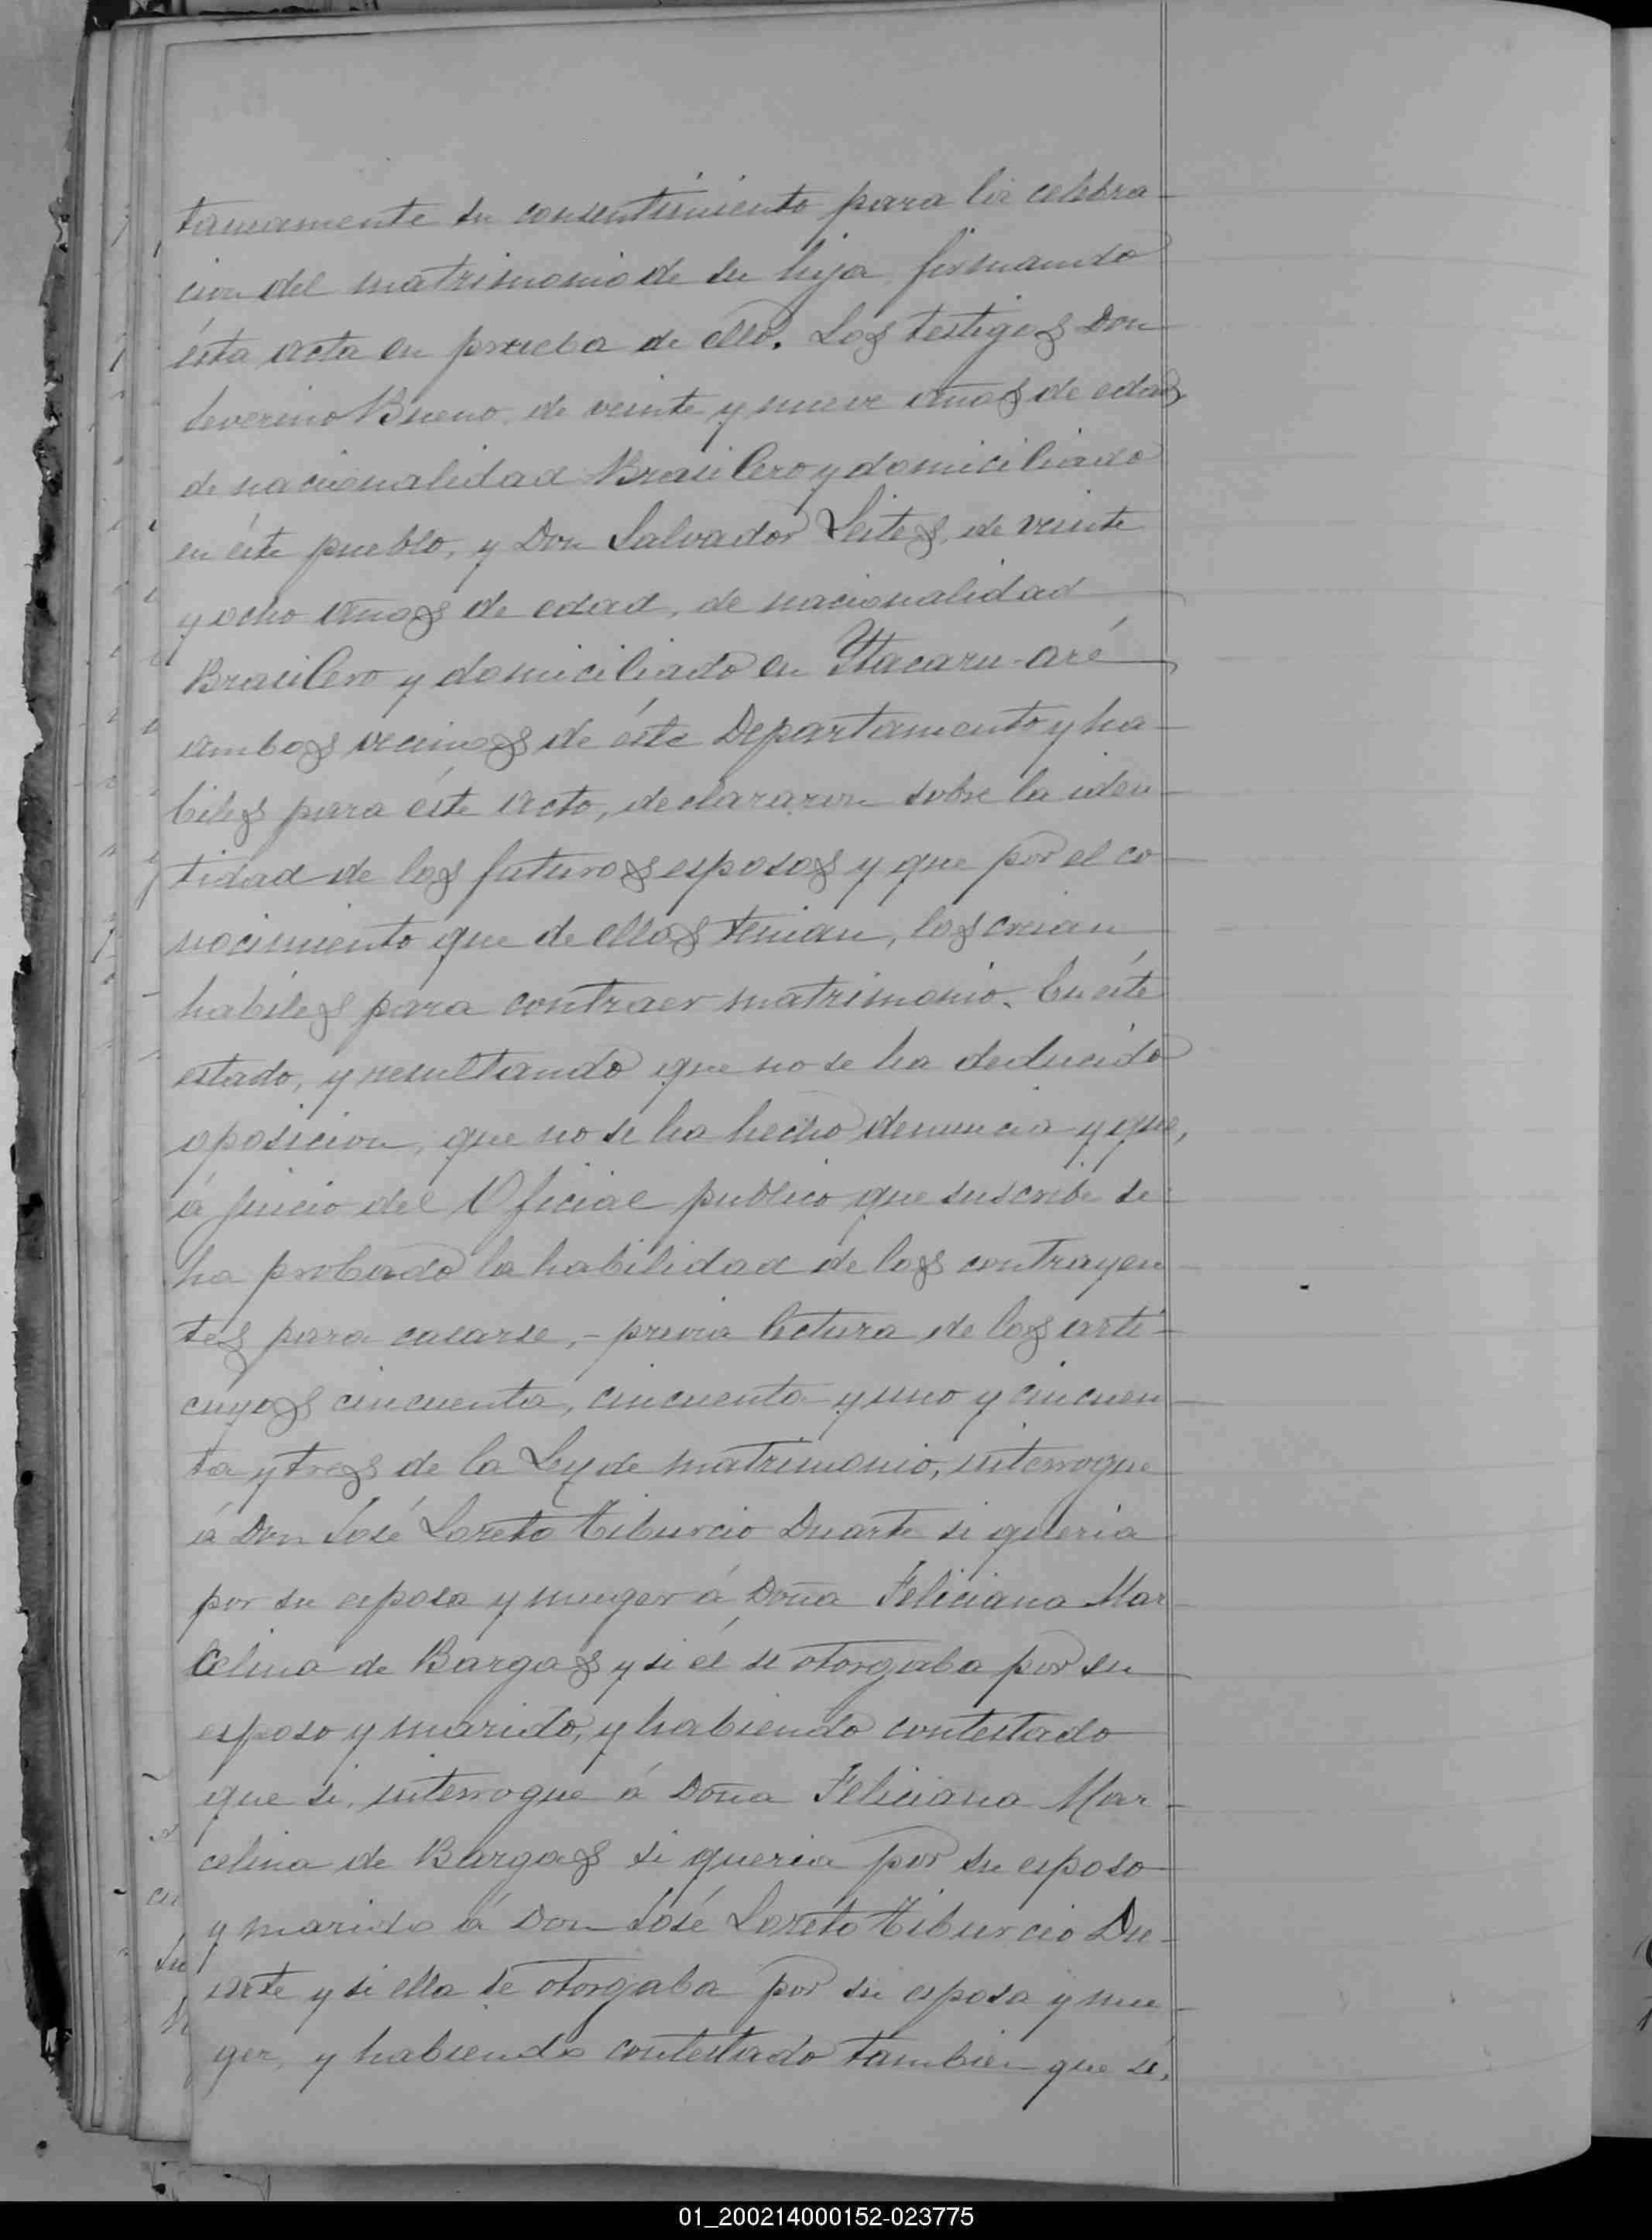 taneamente su consentimiento para la celebra-
cion del matrimonio de su hija, firmando
ésta acta en prueba de ello. Los testigos Don
Severino Bueno, de veinte y nueve años de edad,
de nacionalidad Brasilero y domiciliado
en éste pueblo, y Don Salvador Leites, de veinte
y ocho años de edad, de nacionalidad
Brasilero y domiciliado en Ytacaru-aré
ambos vecinos de éste Departamento y ha-
biles para éste acto, declararon sobre la iden-
tidad de los futuros esposos y que por el co-
nocimiento que de ellos tenian, los creian
habiles para contraer matrimonio. En éste
estado, y resultando que no se ha deducido
oposicion, que no se ha hecho denuncia y que,
á juicio del Oficial publico que suscribe se
ha probado la habilidad de los contrayen-
tes para casarse, - previa lectura de los arti-
cuyos cincuenta, cincuenta y uno y cincuen-
ta y tres de la Ley de matrimonio, interrogue
á Don José Loreto Tiburcio Duarte si queria
por su esposa y muger á Doña Feliciana Mar-
celina de Bargas y si él se otorgaba por su
esposo y marido, y habiendo contestado
que si, interrogue á Doña Feliciana Mar-
celina de Bargas si queria por su esposo
y marido á Don José Loreto Tiburcio Du-
arte y si ella se otorgaba por su esposa y mu-
ger, y habiendo contestado tambien que sí,
01_200214000152-023775